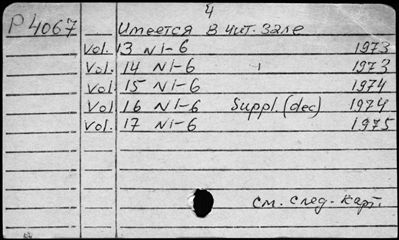 4
P 4067 Имеется в чит. зале
Vol. 13 N 1-6 1973
Vol. 14 N 1-6 1973
Vol. 15 N 1-6 1974
Vol. 16 N 1-6 Suppl. (dec) 1974
Vol. 17 N 1-6 1975
см. след. карт.